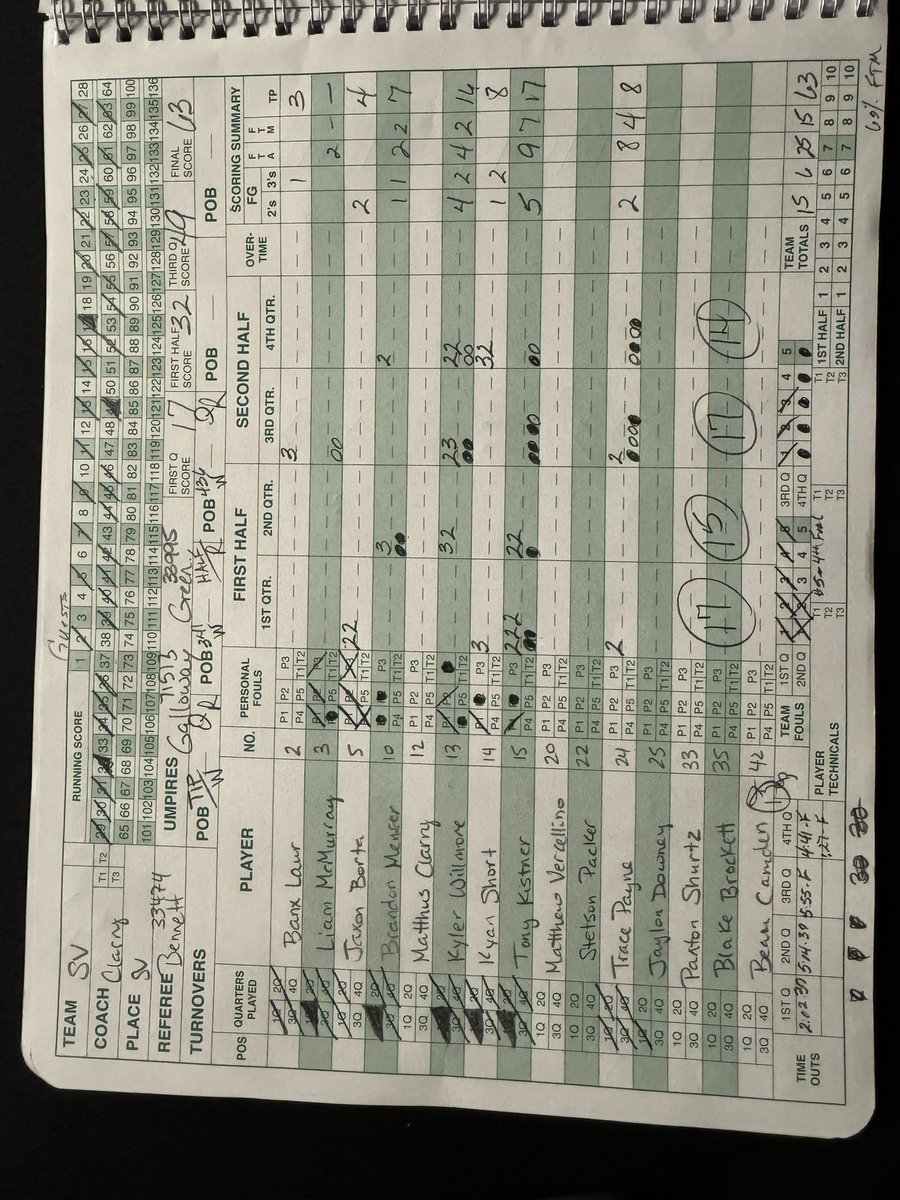 Guests
TEAM SV
COACH Clarry
PLACE SV
REFEREE Bennett 33474
T1 T2
T3
RUNNING SCORE
1 2 3 4 5 6 7 8 9 10 11 12 13 14 15 16 17 18 19 20 21 22 23 24 25 26 27 28
29 30 31 32 33 34 35 36 37 38 39 40 41 42 43 44 45 46 47 48 49 50 51 52 53 54 55 56 57 58 59 60 61 62 63 64
65 66 67 68 69 70 71 72 73 74 75 76 77 78 79 80 81 82 83 84 85 86 87 88 89 90 91 92 93 94 95 96 97 98 99 100
101 102 103 104 105 106 107 108 109 110 111 112 113 114 115 116 117 118 119 120 121 122 123 124 125 126 127 128 129 130 131 132 133 134 135 136
UMPIRES Galloway 71513 Green 33995
FIRST Q SCORE 17 FIRST HALF SCORE 32 THIRD Q SCORE 49 FINAL SCORE 63
TURNOVERS POB TIP W QR POB 341 W HALF R POB 434 W QR POB POB
POS QUARTERS PLAYED PLAYER NO. PERSONAL FOULS FIRST HALF SECOND HALF OVER-TIME SCORING SUMMARY
1ST QTR. 2ND QTR. 3RD QTR. 4TH QTR. FG 2's 3's FTA FTM TP
1Q 2Q 3Q 4Q Banx Laur 2 P1 P2 P3 P4 P5 T1 T2 3 1 3
1Q 2Q 3Q 4Q Liam McMurray 3 P1 P2 P3 P4 P5 T1 T2 00 2 - -
1Q 2Q 3Q 4Q Jaxon Borta 5 P1 P2 P3 P4 P5 T1 T2 22 2 4
1Q 2Q 3Q 4Q Brandon Menser 10 P1 P2 P3 P4 P5 T1 T2 3 2 1 1 2 2 7
1Q 2Q 3Q 4Q Matthus Clarry 12 P1 P2 P3 P4 P5 T1 T2
1Q 2Q 3Q 4Q Kyler Willmore 13 P1 P2 P3 P4 P5 T1 T2 32 23 22 00 4 2 4 2 14
1Q 2Q 3Q 4Q Kyan Short 14 P1 P2 P3 P4 P5 T1 T2 3 32 1 2 8
1Q 2Q 3Q 4Q Tony Kistner 15 P1 P2 P3 P4 P5 T1 T2 222 22 5 9 7 17
1Q 2Q 3Q 4Q Matthew Vercellino 20 P1 P2 P3 P4 P5 T1 T2
1Q 2Q 3Q 4Q Stetson Packer 22 P1 P2 P3 P4 P5 T1 T2
1Q 2Q 3Q 4Q Trace Payne 24 P1 P2 P3 P4 P5 T1 T2 2 2 2 8 4 8
1Q 2Q 3Q 4Q Jaylon Downey 25 P1 P2 P3 P4 P5 T1 T2
1Q 2Q 3Q 4Q Paxton Shurtz 33 P1 P2 P3 P4 P5 T1 T2
1Q 2Q 3Q 4Q Blake Brockett 35 P1 P2 P3 P4 P5 T1 T2 17 15 17 14
1Q 2Q 3Q 4Q Beau Camden 42 P1 P2 P3 P4 P5 T1 T2
TIME OUTS 1ST Q 2ND Q 3RD Q 4TH Q
5:55-F 4:41-F
1:27-F
TEAM FOULS 1ST Q 1 2 3 4 5 3RD Q 1 2 3 4 5
2ND Q 1 2 3 4 5 4TH Q
TEAM TOTALS 15 6 25 15 63
PLAYER TECHNICALS T1 T2 T3 T1 T2 T3 T1 T2 T3
1ST HALF 1 2 3 4 5 6 7 8 9 10
2ND HALF 1 2 3 4 5 6 7 8 9 10
FTM